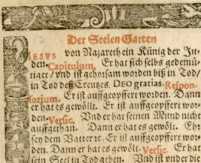 Der Seelen Garten
JESUS von Nazareth ein Künig der Ju-
den. Capitulum, Er hat sich selbs gedemü-
tiget / vnd ist gehorsam worden biß in Tod /
in Tod deß Creutzes. DEO gratias. Respon-
sorium. Er ist auffgeopffert worden. Dann
er hat es gewölt. Er ist auffgeopffert wor-
den. Versic. Vnd er hat seinen Mund nicht
auffgethan. Dann er hat es gewölt. Ehr
sey dem Vatter etc. Er ist auffgeopffert wor-
den. Dann er hat es gewölt. Versic. Er hat
sein Seel in Tod geben. Vnd ist